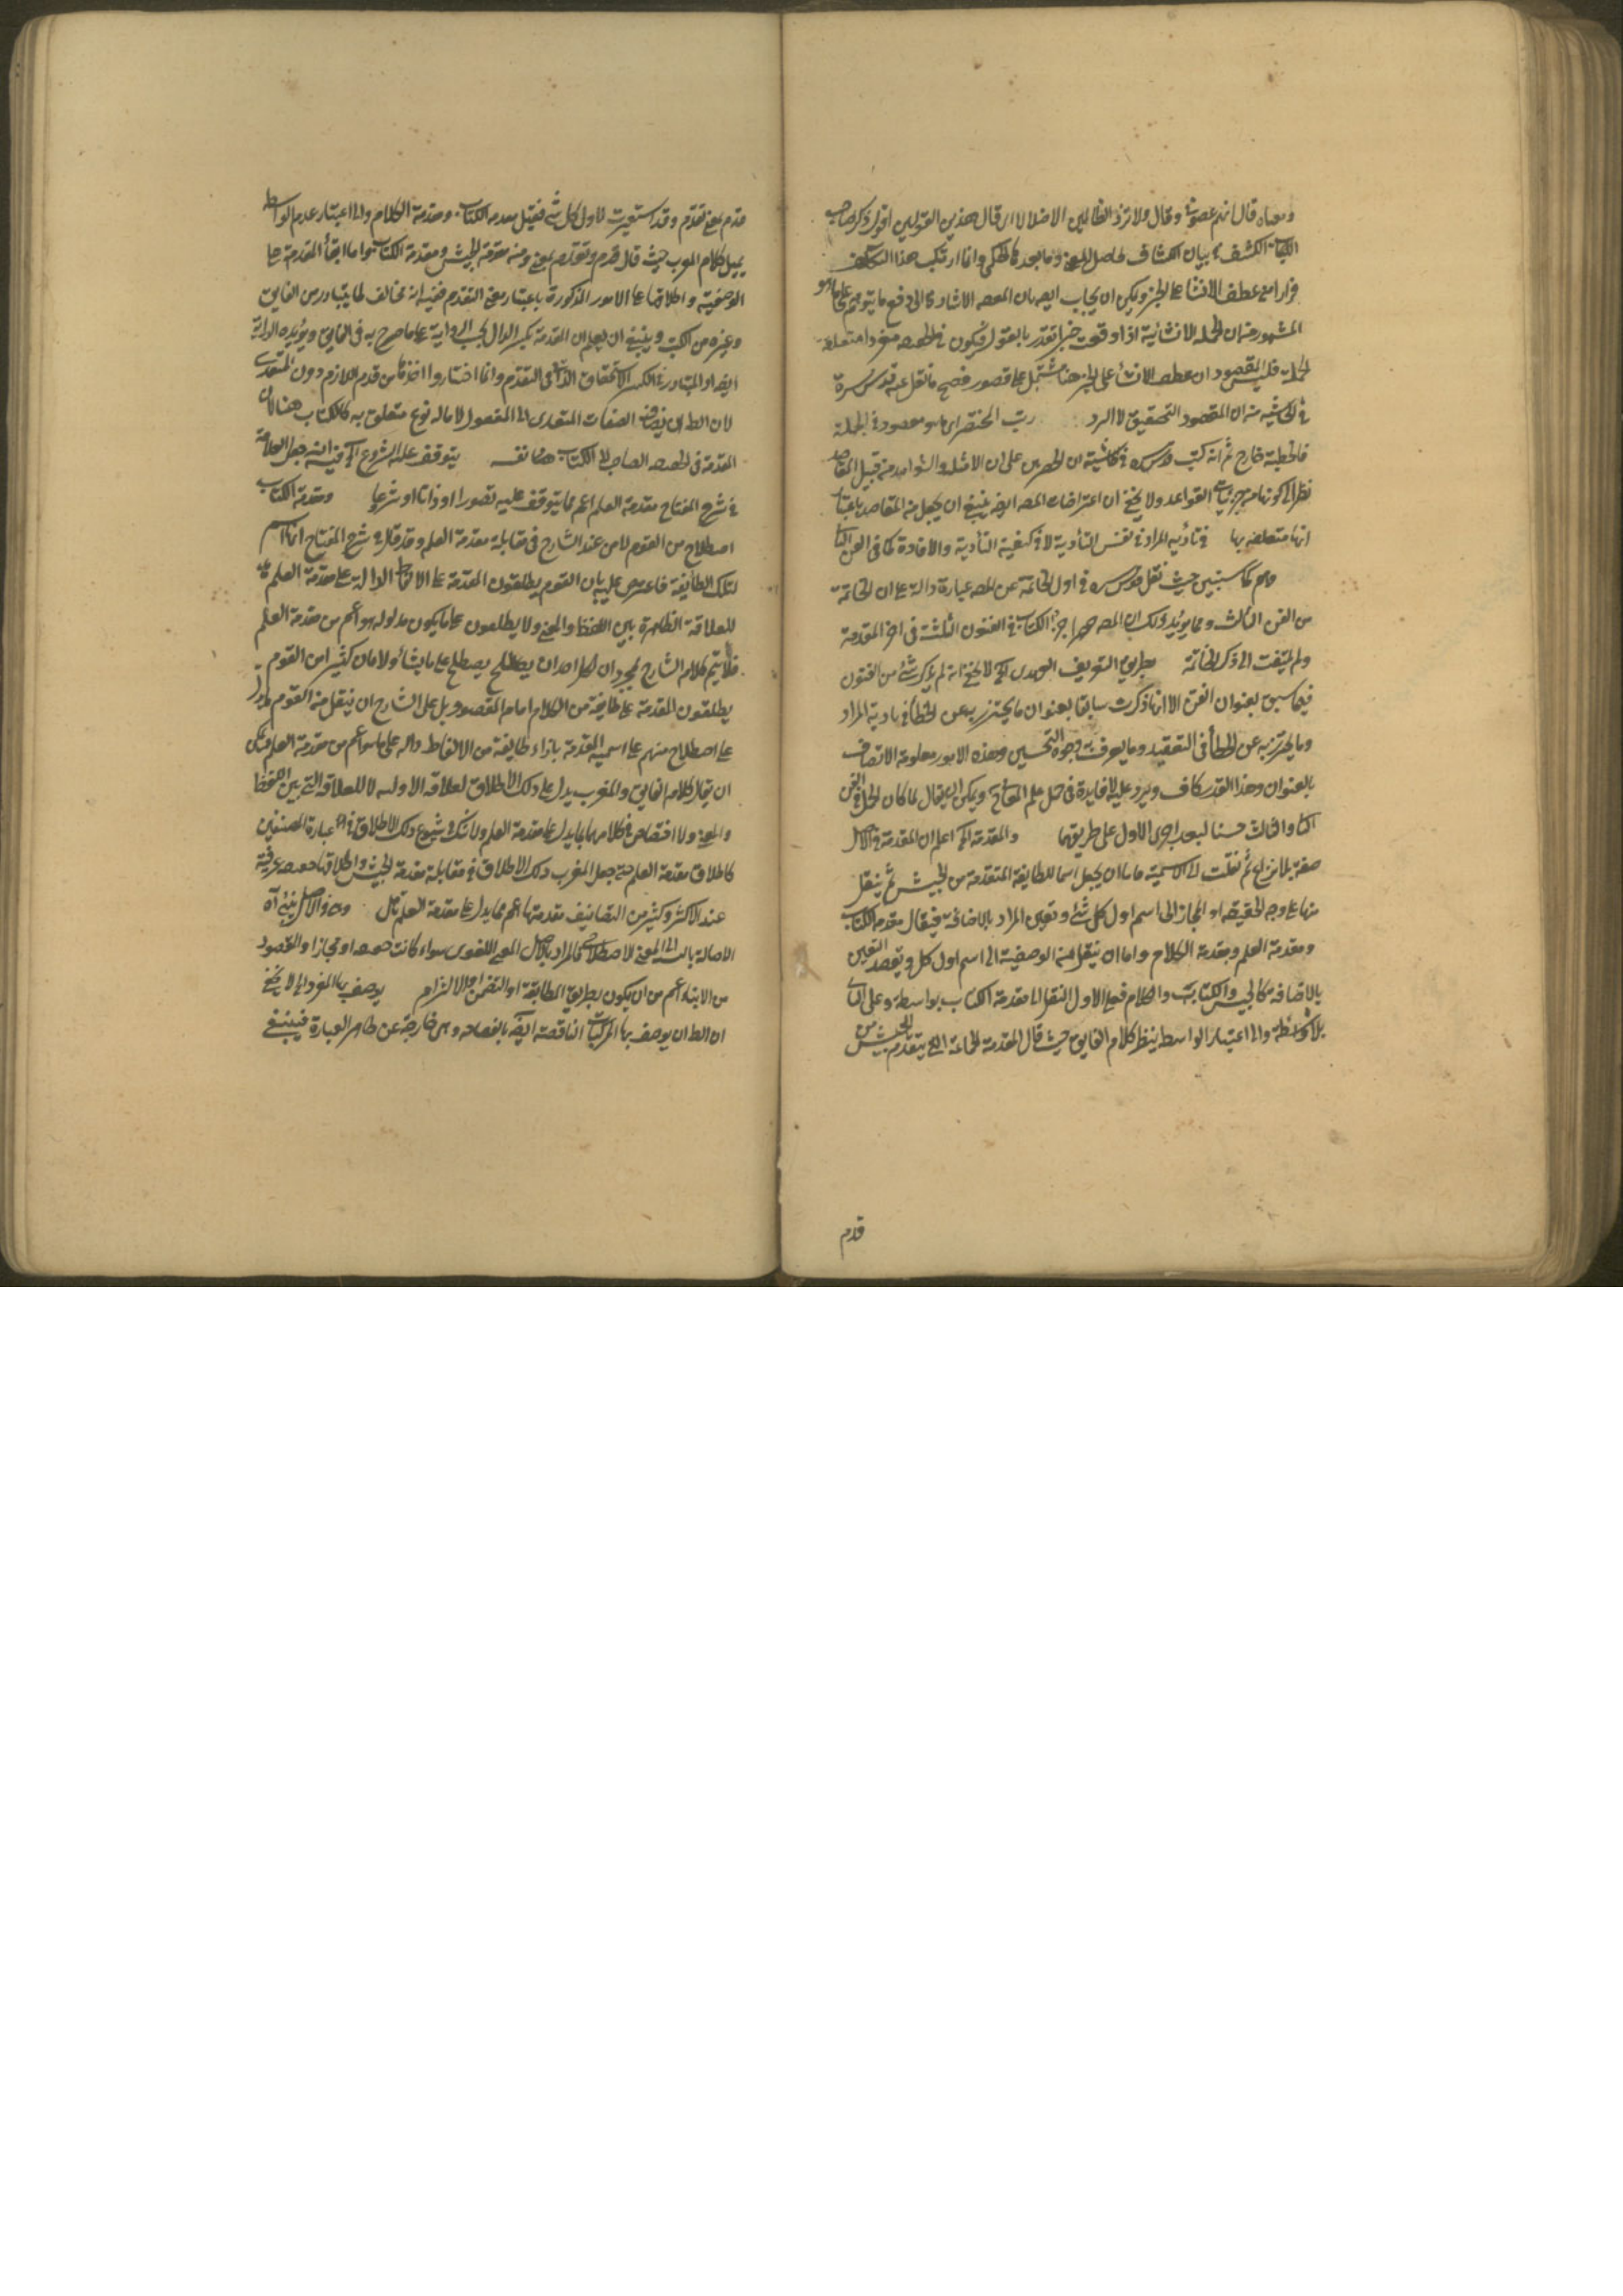 ومعناه قال انهم عصوني وقال ولا تزد الظالمين الا ضلالا اى قال هذين القولين اقول ذكر صاحب
الكشف بيان الكشاف لحاصل المعنى وما بعد كالمحكى وانما ارتكب هذا التكلف
فرارا من عطف الانشا على الخبر ويمكن ان يجاب ايضه بان المصه الاشارة الى دفع ما يتوهم على ما هو
المشهور من ان الجمله الانشائية اذا وقعت خبرا تقدر بالقول فيكون فى الحصه مفردا متعلقه
جملة فليس المقصود ان عطف الانشأ على الخبر هنا مشتمل على قصور فصح ما نقل عنه قدس سره
فى الحاشية من ان المقصود التحقيق لا الرد رتب المختصر اى ما هو مقصود فى الجملة
فالخطبة خارج ثم انه كتب قدس سره فى حاشيته ان الحصر مبنى على ان الامثله والشواهد من قبيل المقاصد
نظرا الى كونها من جزئيات القواعد ولا يخفى ان اعتراضات المصه ايضه ينبغى ان يجعل من المقاصد باعتبار
انها متعلقه بها فى تأديه المراد فى نفس التأدية لا فى كيفية التأدية والافادة كما فى الفن الثانى
وهم كما سيتبين حيث نقل قدس سره فى اول الخاتمة عن المصه عبارة دالة على ان الخاتمة
من الفن الثالث ومما يؤيد ذلك ان المصه حصر اجزا الكتاب فى الفنون الثلثة فى اخر المقدمة
ولم يلتفت الى ذكر الخاتمة بطريق التعريف العهدى الخ لا يخفى انه لم يذكر شئ من الفنون
فيما سبق بعنوان الفن الا انها ذكرت سابقا بعنوان ما يحترز به عن الخطأ فى تادية المراد
وما يحترز به عن الخطأ فى التعقيد وما يعرف به وجوه التحسين وهذه الامور معلومة الاتصاف
بالعنوان وهذا القدر كاف ويرد عليه لا فايدة فى حمل علم المعانى ويمكن ان يقال لما كان الحمل فى الفن
الثانى والثالث حسنا لبعد اجرى الاول على طريقهما والمقدمة الخ اعلم ان المقدمة فى الاصل
صفة بلا نزاع ثم نقلت الى الاسمية فاما ان يجعل اسما للطايفة المتقدمة من الجيش ثم ينقل
منها على وجه الحقيقة او المجاز الى اسم اول كل شئ وتعين المراد بالاضافة فيقال مقدمة الكتاب
ومقدمة العلم ومقدمة الكلام واما ان ينقل من الوصفية الى اسم اول كل ويقصد التعين
بالاضافه كالجيش والكتابة والكلام فعلى الاول النقل الى مقدمة الكتاب بواسطة وعلى الثانى
بلا واسطة والى اعتبار الواسط ينظر كلام الفايق حيث قال المقدمة الجماعة التى يتقدم الجيش من
قدم
قدم بمعنى تقدم وقد استعيرت لاول كل شئ فقيل مقدمه الكتاب ومقدمة الكلام والى اعتبار عدم الواسط
يميل كلام المغرب حيث قال قدم وتقدم بمعنى ومنه مقدمة الجيش ومقدمة الكتاب واما ابقأ المقدمة على
الوصفية واطلاقها على الامور المذكورة باعتبار معنى التقدم ففيه انه مخالف لما يتبادر من الفايق
وغيره من الكتب وينبغى ان يعلم ان المقدمة بكسر الدال بحسب الرواية على ما صرح به فى الفايق ويؤيده الدراية
ايضا والمتبادر من الكسر الاستحقاق الذاتى فى التقدم وانما اختاروا اخذها من قدم اللازم دون المتعدى
لان الظاهر ان يضاف الصفات المتعدى الى المفعول لا ماله نوع متعلق به كالكتاب هنا لان
المقدمة فى الحصه الصاحب لا الكتاب هنا نفسه يتوقف عليه الشروع الخ فيه انه جعل العلامة
فى شرح المفتاح مقدمة العلم اعم مما يتوقف عليه تصورا او ذاتا او شرعا ومقدمة الكتاب
اصطلاح من القوم لا من عند الشارح فى مقابلة مقدمة العلم وقد قال فى شرح المفتاح انها اسم
لتلك الطايفة فاعترض عليه بان القوم يطلقون المقدمة على الالفاظ الدالة على مقدمة العلم
للعلاقة الظاهرة بين اللفظ والمعنى ولا يطلقون على ما يكون مدلوله هو اعم من مقدمة العلم
فلا يتم كلام الشارح بمجرد ان لكل احد ان يصطلح على ما يشأ ولا بان كثيرا من القوم
يطلقون المقدمة على طايفة من الكلام امام المقصود بل على الشارح ان ينقل من القوم
على اصطلاح منهم على اسميه المقدمة بازاء طايفة من الالفاظ داله على ما هو اعم من مقدمة العلم ويمكن
ان يقال كلام الفايق والمغرب يدل على ذلك الاطلاق لعلاقة الاوليه لا للعلاقة التى بين اللفظ
والمعنى ولا اختصاص فى كلامهما بما يدل على مقدمة العلم ولا شك فى شيوع ذلك الاطلاق فى عبارة المصنفين
كاطلاق مقدمة العلم حتى جعل المغرب ذلك الاطلاق فى مقابلة مقدمة الجيش واطلاقها حقيقه عرفية
عند الاكثر وكثير من التصانيف مقدمتها اعم مما يدل على مقدمة العلم تامل وهو فى الاصل ينبئ آه
الاصالة بالنسبة الى المعنى الاصطلاحى فالمراد بالاصل المعنى اللغوى سواء كانت حقيقه او مجازا والمقصود
من الابناء اعم من ان يكون بطريق المطابقة او التضمن او الالتزام يوصف بها المفرد الخ لا يخفى
ان الظاهر ان يوصف بها المركبات الناقصة ايضه بالفصاحه وهى خارجة عن ظاهر العبارة فينبغى